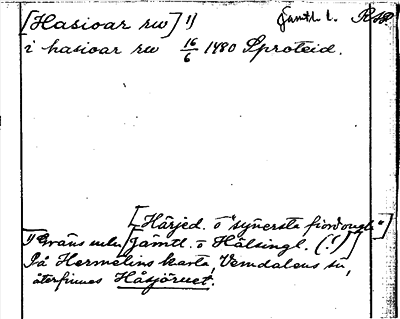 [Hasioar rw] 1) Jämtl. l. RAP
i hasioar rw 16/6 1480 Sproteid.
[Härjed. o "synersta fiordungh"]
1) Gräns mln [Jämtl. o Hälsingl. (!)]
På Hermelins karta, Vemdalens sn,
återfinnes Håsjöruet.